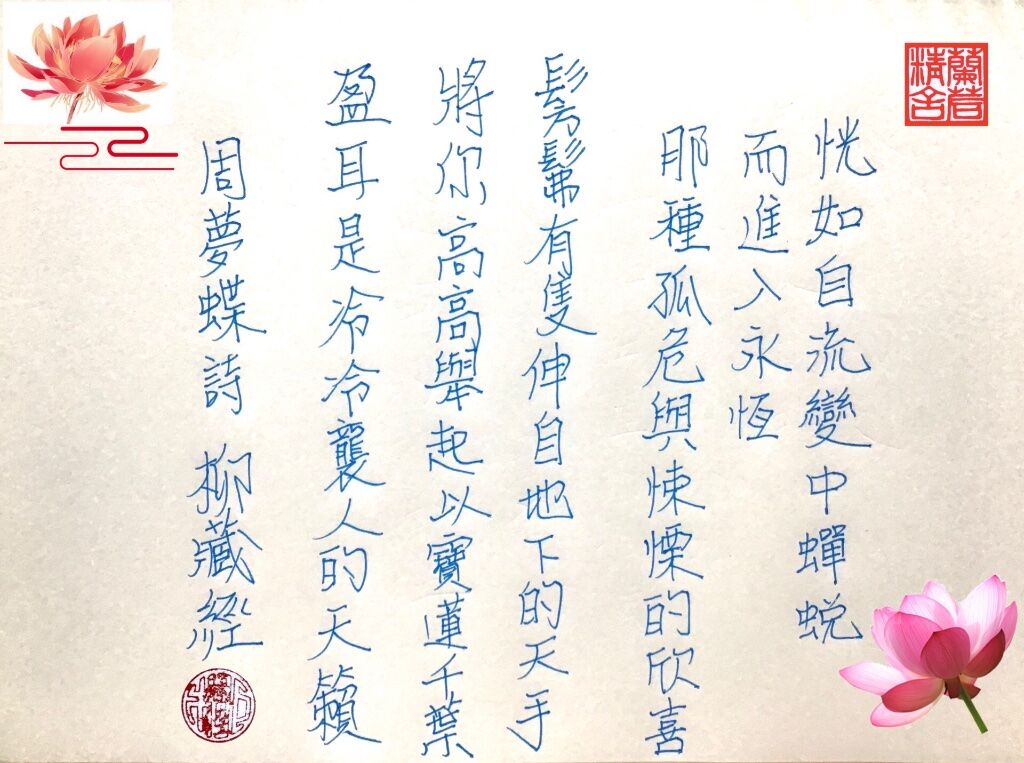 恍如自流變中蟬蛻
而進入永恆
那種孤危與悚慄的欣喜
髣髴有隻伸自地下的天手
將你高高舉起以寶蓮千葉
盈耳是冷冷襲人的天籟
周夢蝶詩 柳藏經